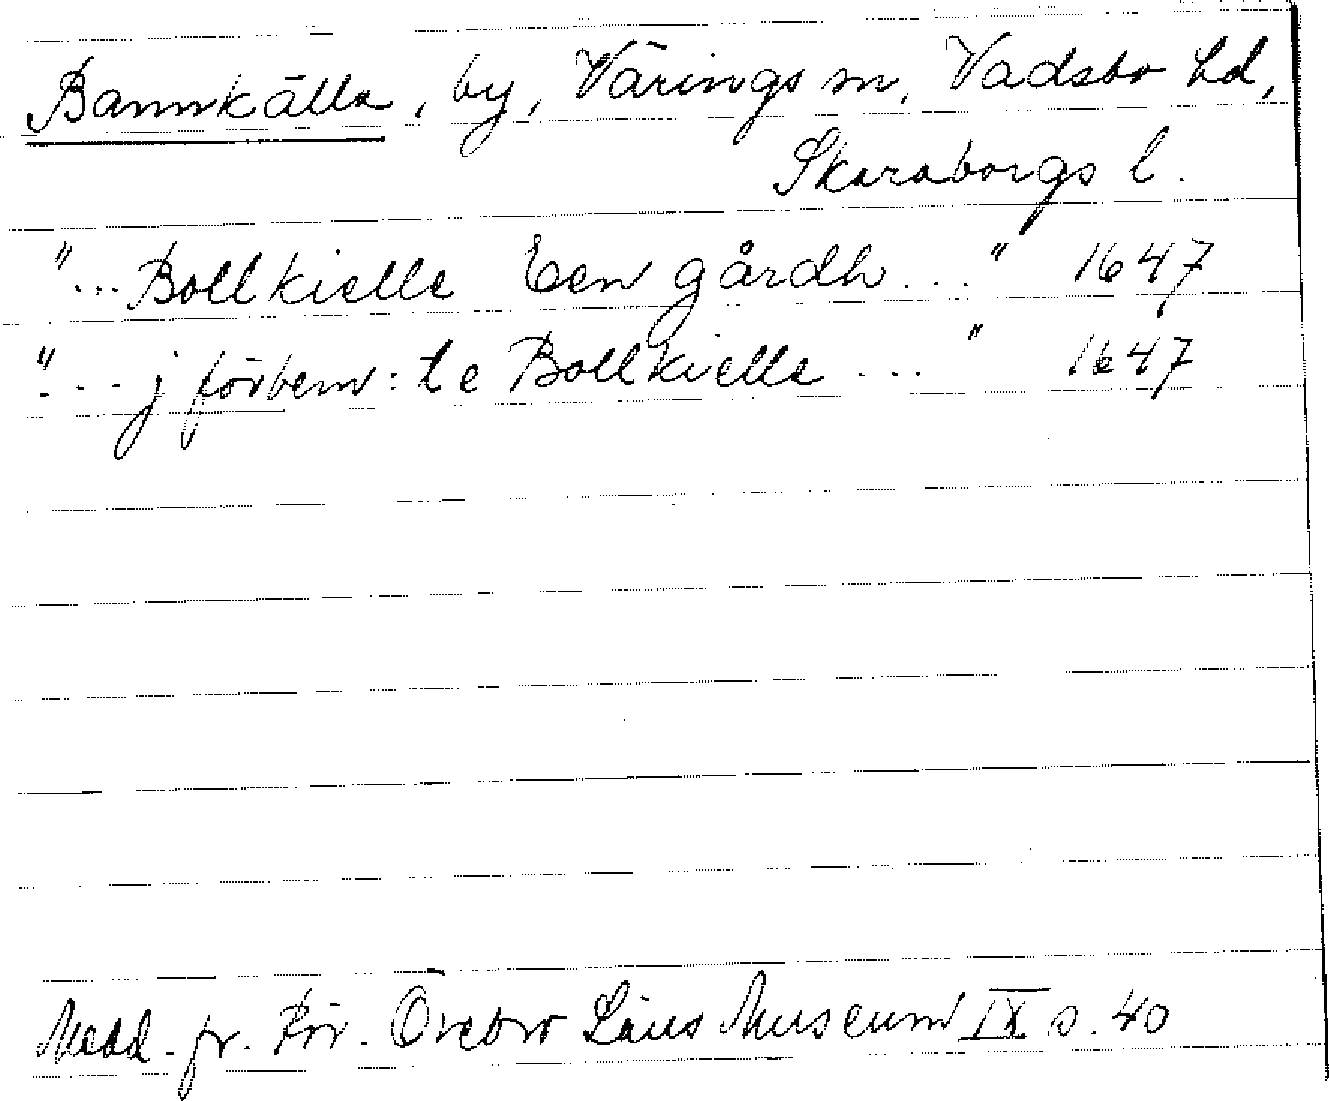 Bannkälla, by, Värings sn, Vadsbo hd,
Skaraborgs l.
"... Bollkielle Een gårdh ..." 1647
"... j förbem:te Bollkielle ..." 1647
Medd. fr. För. Örebro Läns Museum IX s. 40